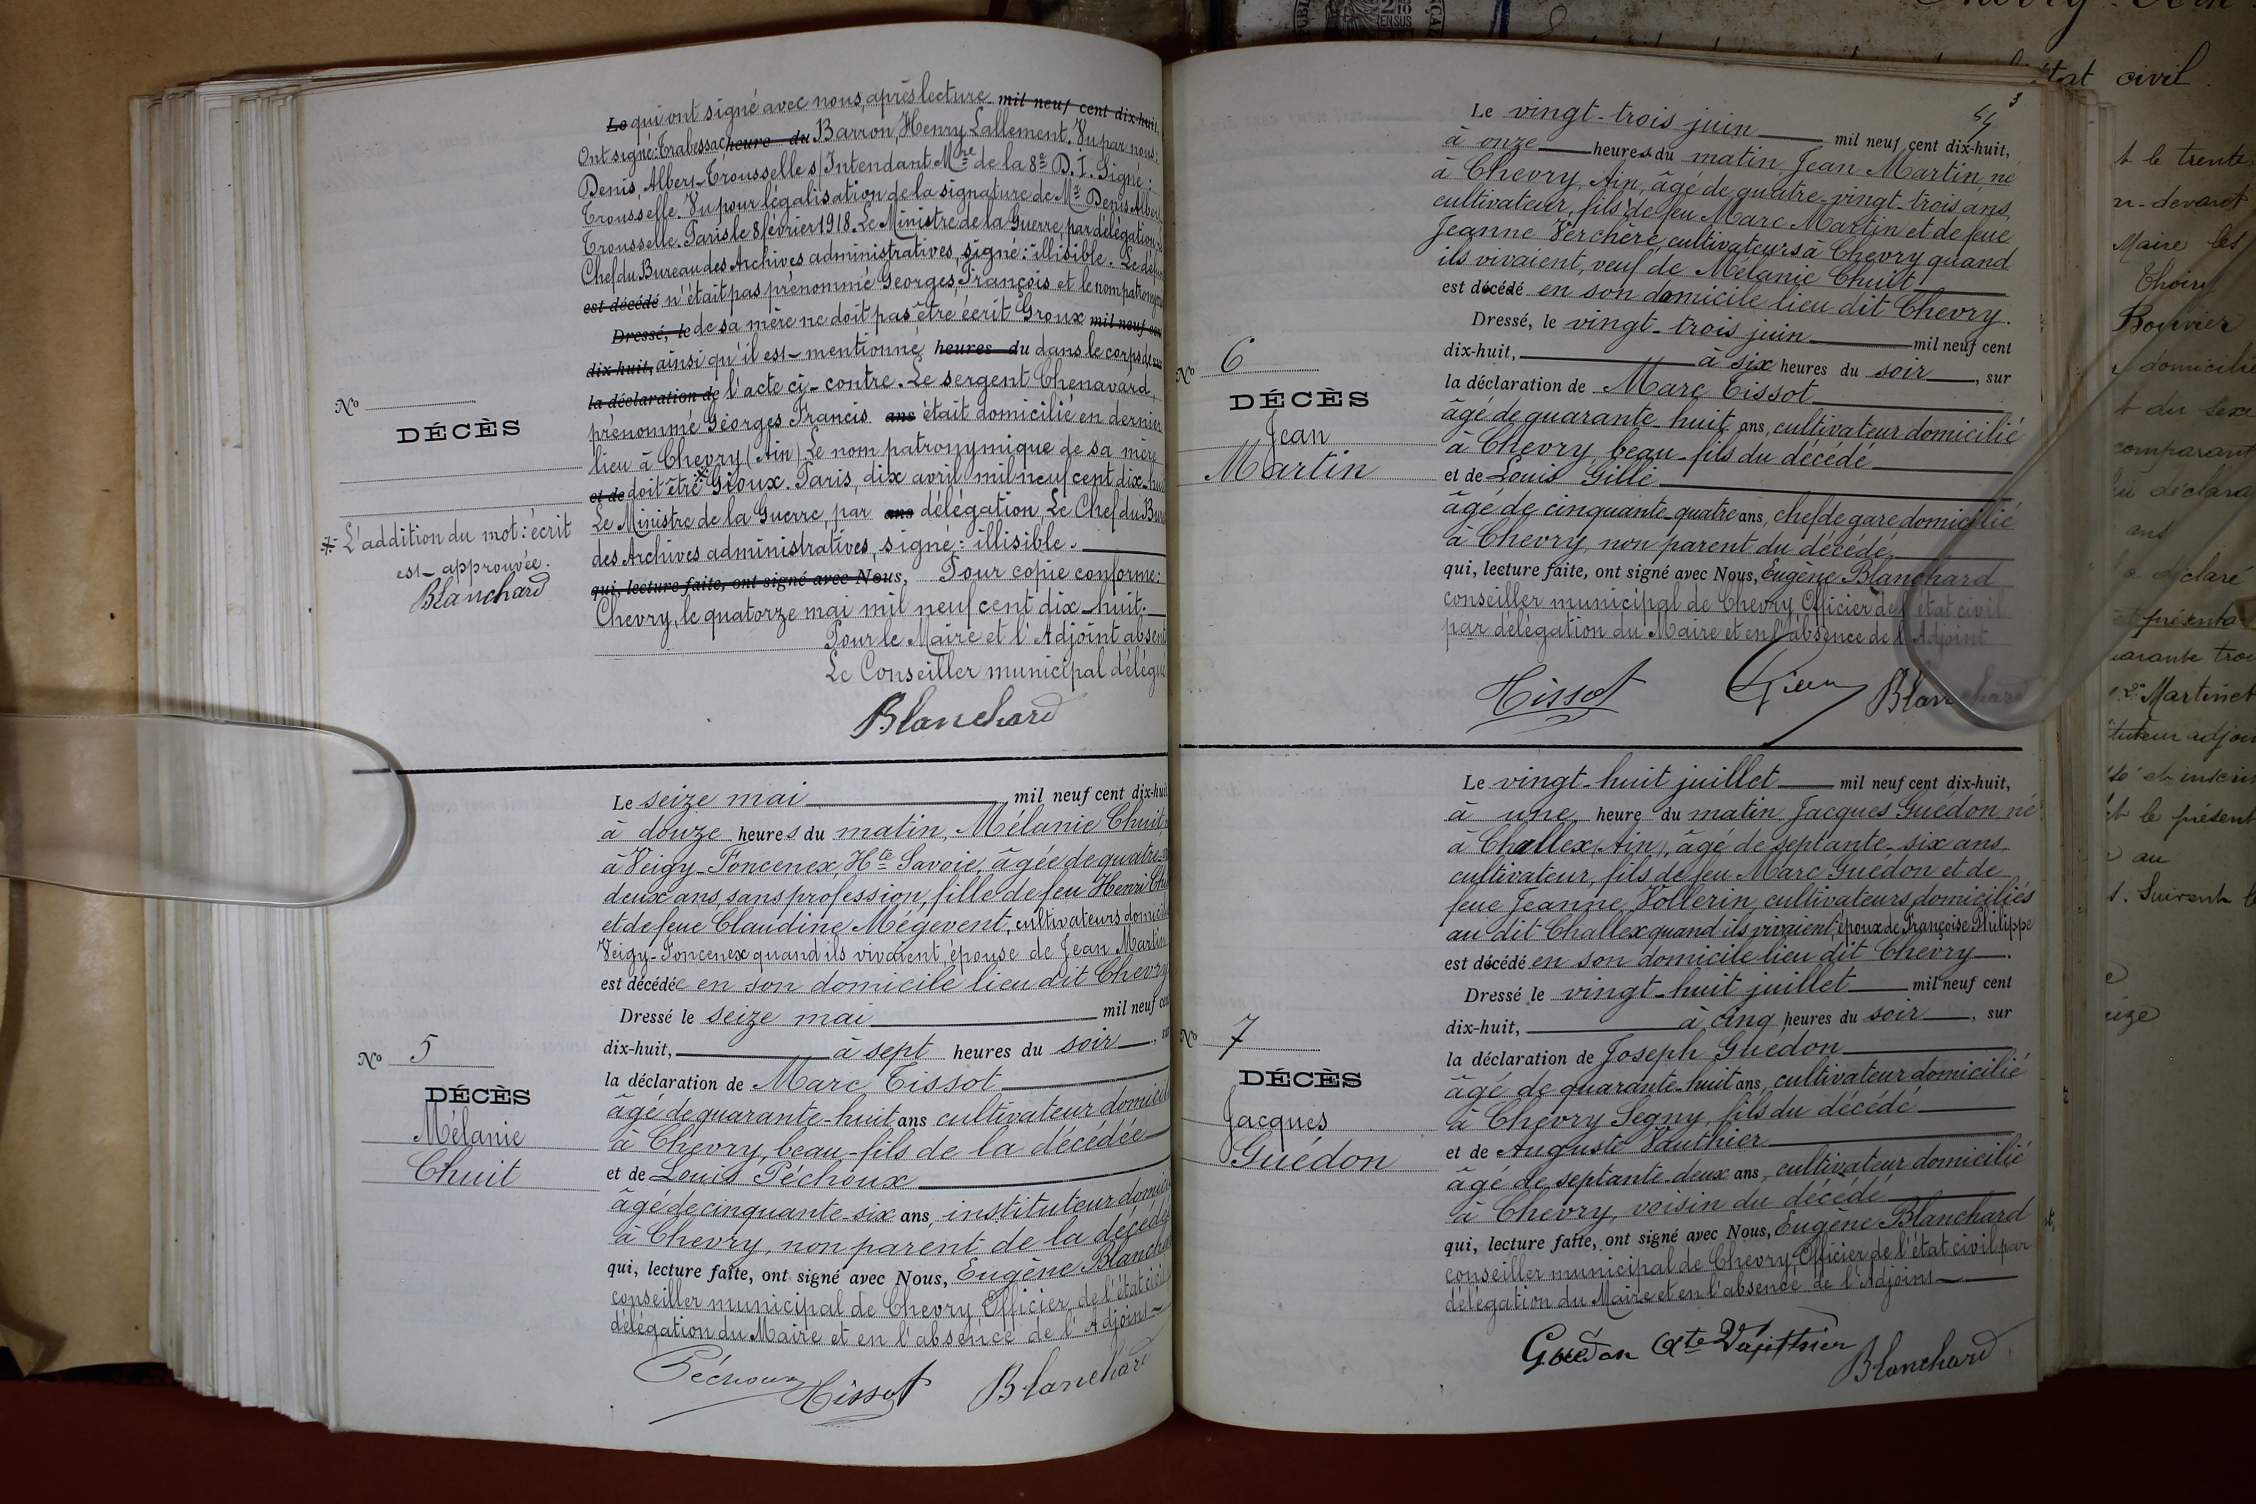 Le qui ont signé avec nous, après lecture mil neuf cent dix-huit,
Ont signé: Trabessac heure du Barron, Henry Lallement. Vu par nous:
Denis, Albert Trousselle s/Intendant Mre de la 8e D.I. Signé:
Trousselle. Vu pour légalisation de la signature de Mr Denis Albert
Trousselle. Paris le 8 février 1918. Le Ministre de la Guerre, par délégation
Chef du Bureau des Archives administratives, signé: illisible. Le
est décédé n'était pas prénommé Georges, François et le nom
Dressé, le de sa mère ne doit pas être écrit Groux mil neuf cent
dix-huit, ainsi qu'il est mentionné heures du dans le corps de
la déclaration de l'acte ci-contre. Le sergent Chenavard,
prénommé Georges Francis ans était domicilié en dernier
lieu à Chevry (Ain). Le nom patronymique de sa mère
et de doit être * Gioux. Paris, dix avril mil neuf cent dix-huit
Le Ministre de la Guerre, par ans délégation, Le Chef du Bur
des Archives administratives, signé: illisible.
qui, lecture faite, ont signé avec Nous, Pour copie conforme:
Chevry, le quatorze mai mil neuf cent dix-huit.
Pour le Maire et l'Adjoint absent
Le Conseiller municipal délégué
Blanchard
No
DÉCÈS
* L'addition du mot: écrit
est approuvée.
Blanchard
No 5
DÉCÈS
Mélanie
Chuit
Le seize mai mil neuf cent dix-huit
à douze heures du matin, Mélanie Chuit
à Veigy-Foncenex, Hte Savoie, âgée de quatre
deux ans, sans profession, fille de feu Henri Chu
et de feue Claudine Mégevent, cultivateurs domici
Veigy-Foncenex quand ils vivaient, épouse de Jean Martin
est décédée en son domicile lieu dit Chevry
Dressé le seize mai mil neuf cen
dix-huit, à sept heures du soir, sur
la déclaration de Marc Tissot
âgé de quarante-huit ans cultivateur domicil
à Chevry, beau-fils de la décédée
et de Louis Péchoux
âgé de cinquante-six ans, instituteur domici
à Chevry, non parent de la décédée
qui, lecture faite, ont signé avec Nous, Eugène Blancha
conseiller municipal de Chevry Officier de l'état civil
délégation du Maire et en l'absence de l'Adjoint
Péchoux Tissot Blanchard
3
Le vingt-trois juin mil neuf cent dix-huit,
à onze heures du matin, Jean Martin, né
à Chevry, Ain, âgé de quatre-vingt-trois ans,
cultivateur, fils de feu Marc Martin et de feue
Jeanne Verchère, cultivateurs à Chevry quand
ils vivaient, veuf de Mélanie Chuit
est décédé en son domicile lieu dit Chevry.
Dressé, le vingt-trois juin mil neuf cent
dix-huit, à six heures du soir, sur
la déclaration de Marc Tissot
âgé de quarante-huit ans, cultivateur domicilié
à Chevry, beau-fils du décédé
et de Louis Gille
âgé de cinquante-quatre ans, chef de gare domicilié
à Chevry, non parent du décédé,
qui, lecture faite, ont signé avec Nous, Eugène Blanchard
conseiller municipal de Chevry Officier de l'état civil
par délégation du Maire et en l'absence de l'Adjoint
Tissot Blanchard
No 6
DÉCÈS
Jean
Martin
Le vingt-huit juillet mil neuf cent dix-huit,
à une heure du matin, Jacques Guédon, né
à Challex (Ain), âgé de septante-six ans,
cultivateur, fils de feu Marc Guédon et de
feue Jeanne Vollerin, cultivateurs domiciliés
au dit Challex quand ils vivaient, époux de Françoise Philippe
est décédé en son domicile lieu dit Chevry.
Dressé le vingt-huit juillet mil neuf cent
dix-huit, à cinq heures du soir, sur
la déclaration de Joseph Guédon
âgé de quarante-huit ans, cultivateur domicilié
à Chevry Segny, fils du décédé
et de Auguste Vauthier
âgé de septante-deux ans, cultivateur domicilié
à Chevry, voisin du décédé
qui, lecture faite, ont signé avec Nous, Eugène Blanchard
conseiller municipal de Chevry Officier de l'état civil par
délégation du Maire et en l'absence de l'Adjoint
Guédon Ate Vauthier Blanchard
No 7
DÉCÈS
Jacques
Guédon
état civil.
t le trente
Maire les
Thoiry
Bouvier
domicilié
t du sexe
comparant
ans
a déclaré
présenta
arante trois
Martinet
tuteur adjoin
et inscrit
t le présent
au
t. Suivent